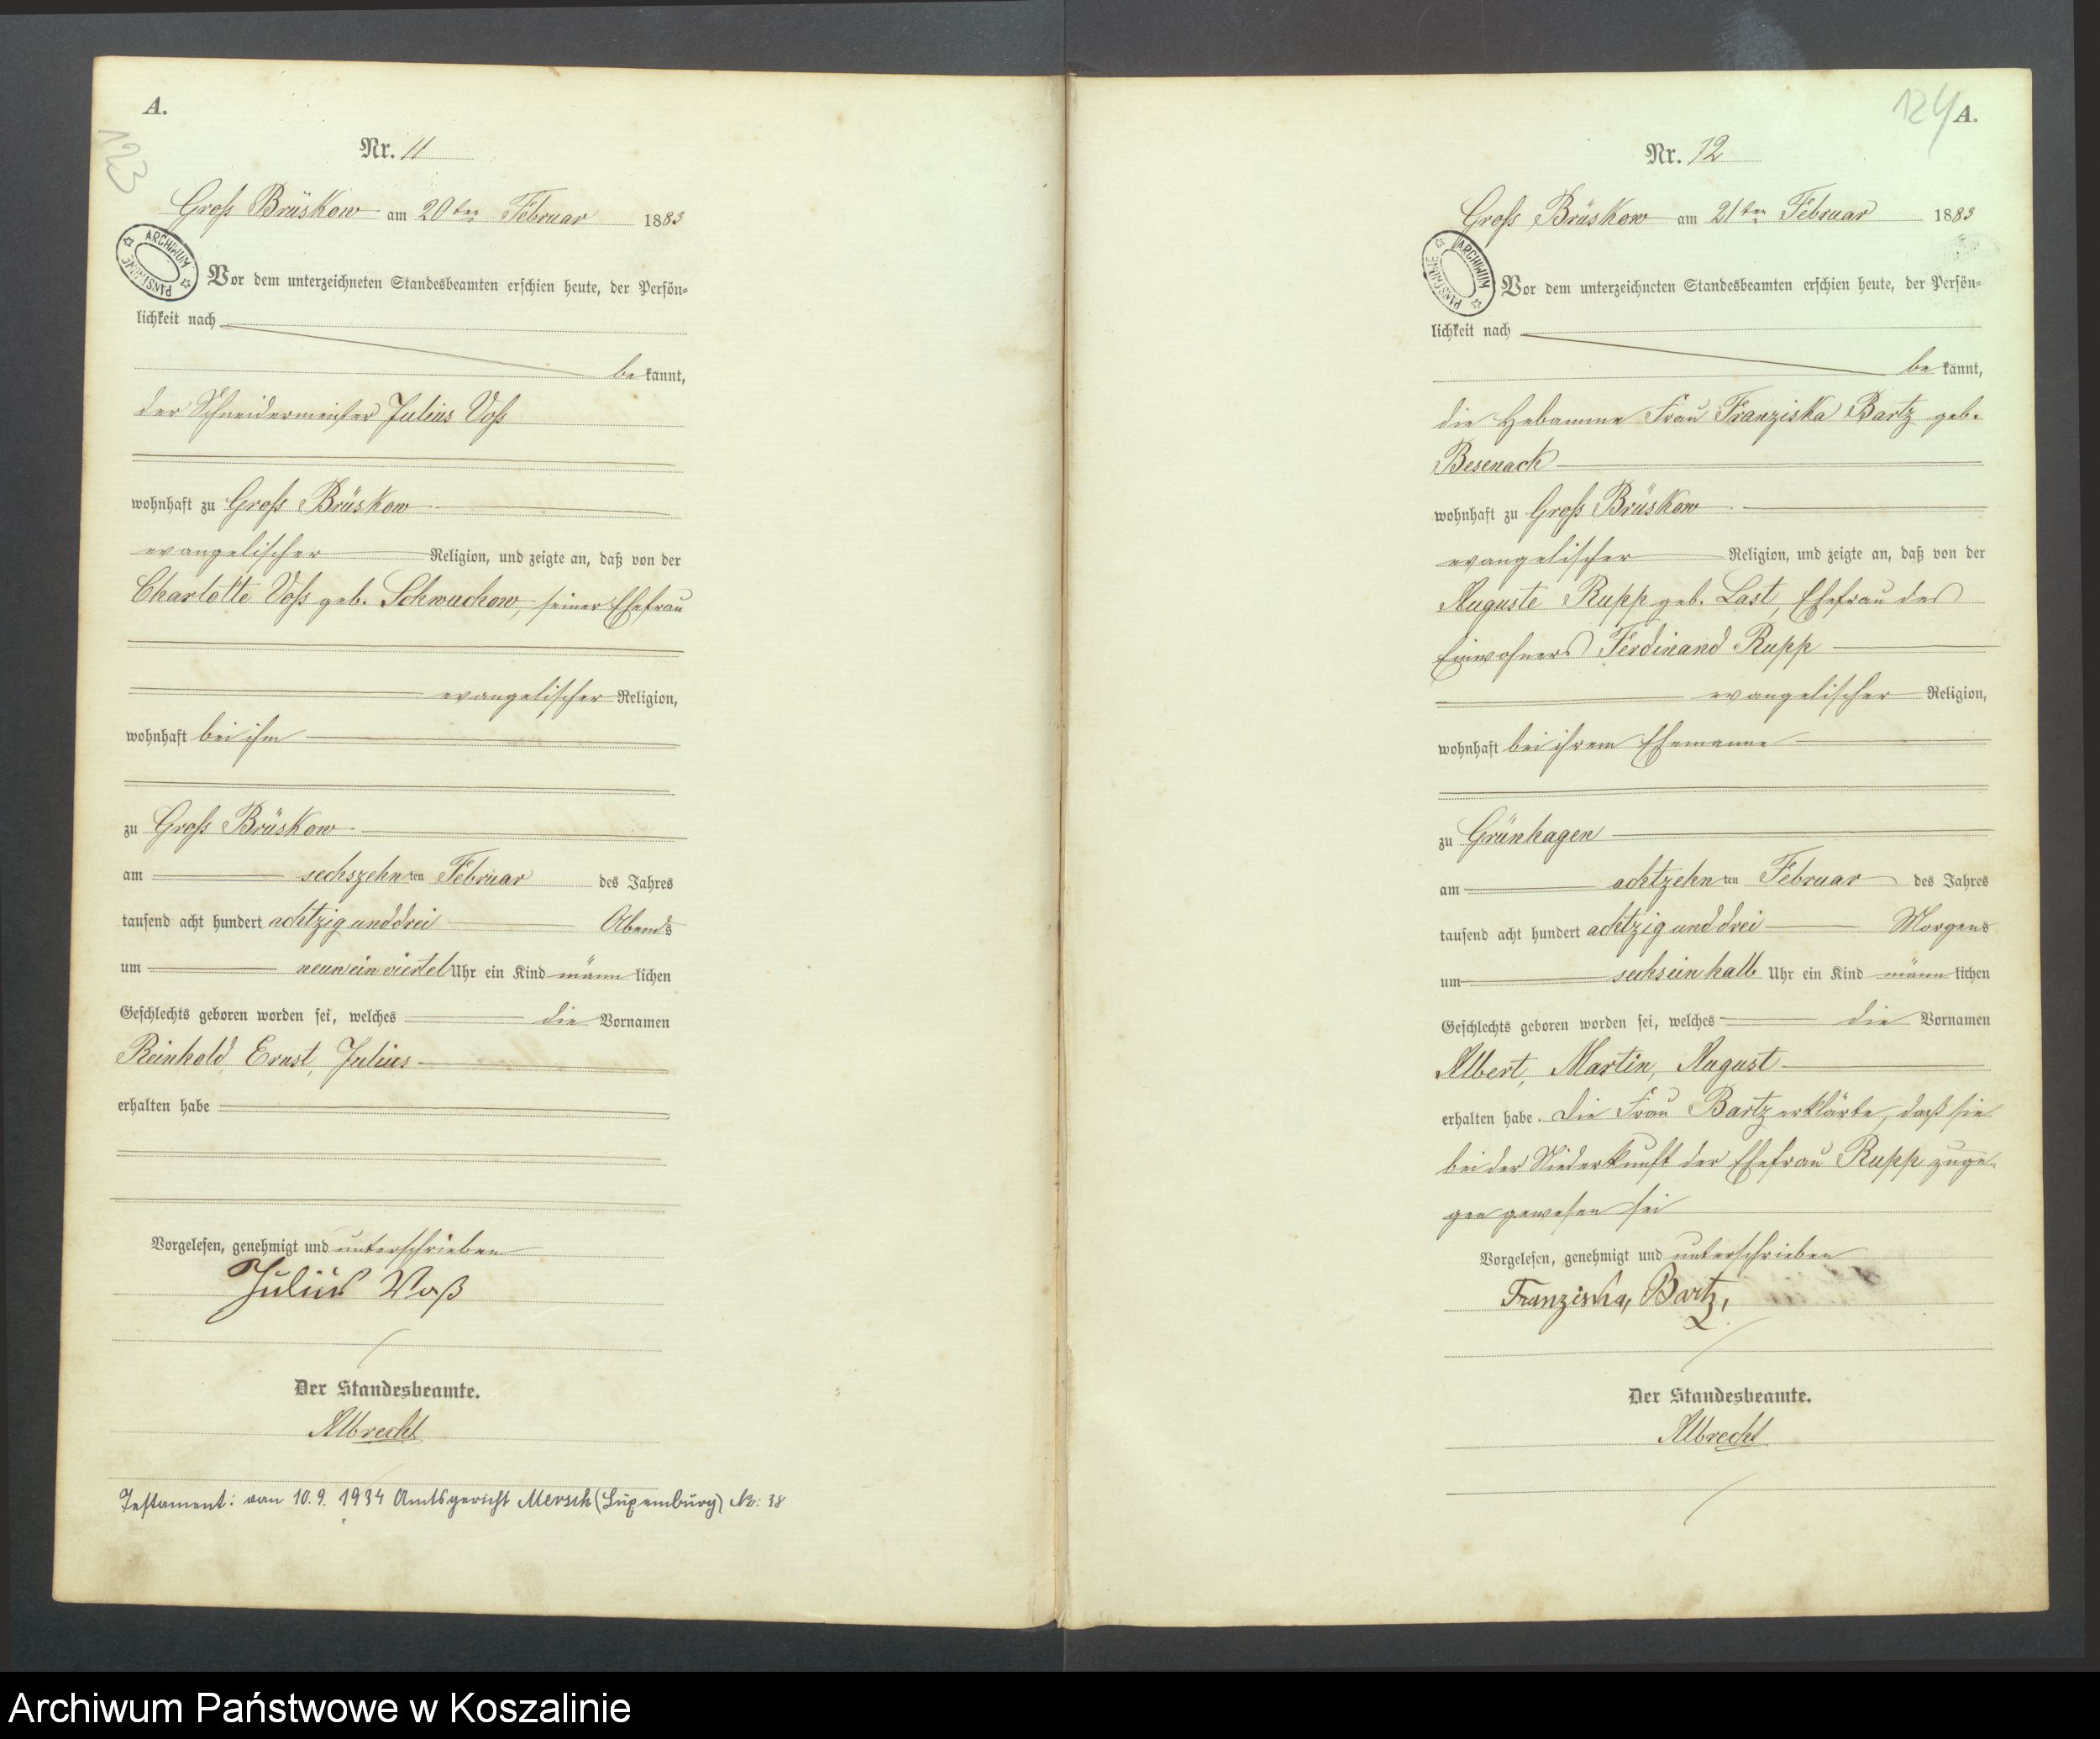 A.
123
Nr. 11
Groß Brüskow am 20ten Februar 1883
ARCHIWUM PAŃSTWOWE
Vor dem unterzeichneten Standesbeamten erschien heute, der Persön=
lichkeit nach
be kannt,
der Schneidermeister Julius Voß
wohnhaft zu Groß Brüskow
evangelischer Religion, und zeigte an, daß von der
Charlotte Voß geb. Schwuchow, seiner Ehefrau
evangelischer Religion,
wohnhaft bei ihm
zu Groß Brüskow
am sechszehn ten Februar des Jahres
tausend acht hundert achtzig und drei Abends
um neun ein viertel Uhr ein Kind männ lichen
Geschlechts geboren worden sei, welches die Vornamen
Reinhold, Ernst, Julius
erhalten habe
Vorgelesen, genehmigt und unterschrieben
Julius Voß
Der Standesbeamte.
Albrecht
Testament: van 10.9. 1934 Amtsgericht Mersch (Luxemburg) Nr: 38
124
A.
Nr. 12
Groß Brüskow am 21ten Februar 1883
ARCHIWUM PAŃSTWOWE
Vor dem unterzeichneten Standesbeamten erschien heute, der Persön=
lichkeit nach
be kannt,
die Hebamme Frau Franziska Bartz geb.
Besenack
wohnhaft zu Groß Brüskow
evangelischer Religion, und zeigte an, daß von der
Auguste Rupp geb. Last, Ehefrau des
Einwohners Ferdinand Rupp
evangelischer Religion,
wohnhaft bei ihrem Ehemanne
zu Grünhagen
am achtzehn ten Februar des Jahres
tausend acht hundert achtzig und drei Morgens
um sechs ein halb Uhr ein Kind männ lichen
Geschlechts geboren worden sei, welches die Vornamen
Albert, Martin, August
erhalten habe. Die Frau Bartz erklärte, daß sie
bei der Niederkunft der Ehefrau Rupp zuge-
gen gewesen sei
Vorgelesen, genehmigt und unterschrieben
Franziska, Bartz,
Der Standesbeamte.
Albrecht
Archiwum Państwowe w Koszalinie